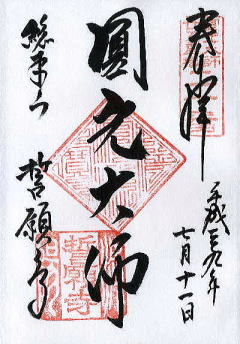 奉拝
平成二九年
七月十一日
圓光大師
総本山
誓願寺